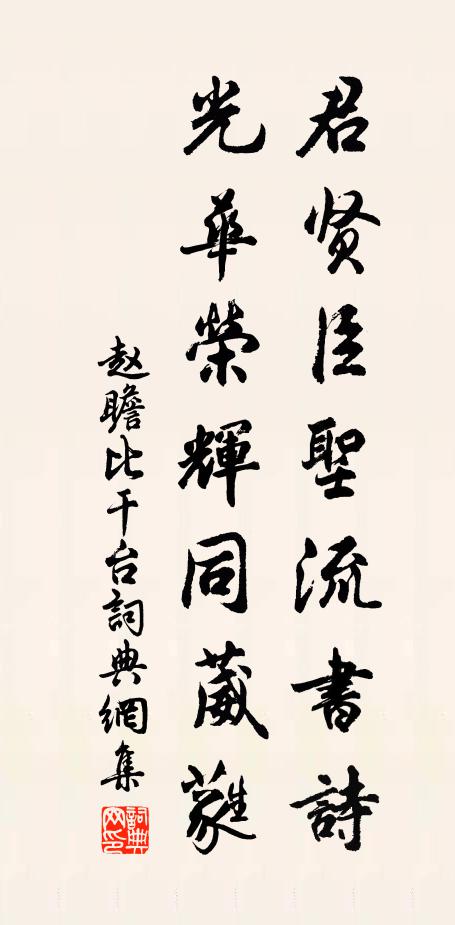 君贤臣聖流書詩
光華榮輝同葳蕤
赵瞻比干台詞典網集
詞典网印